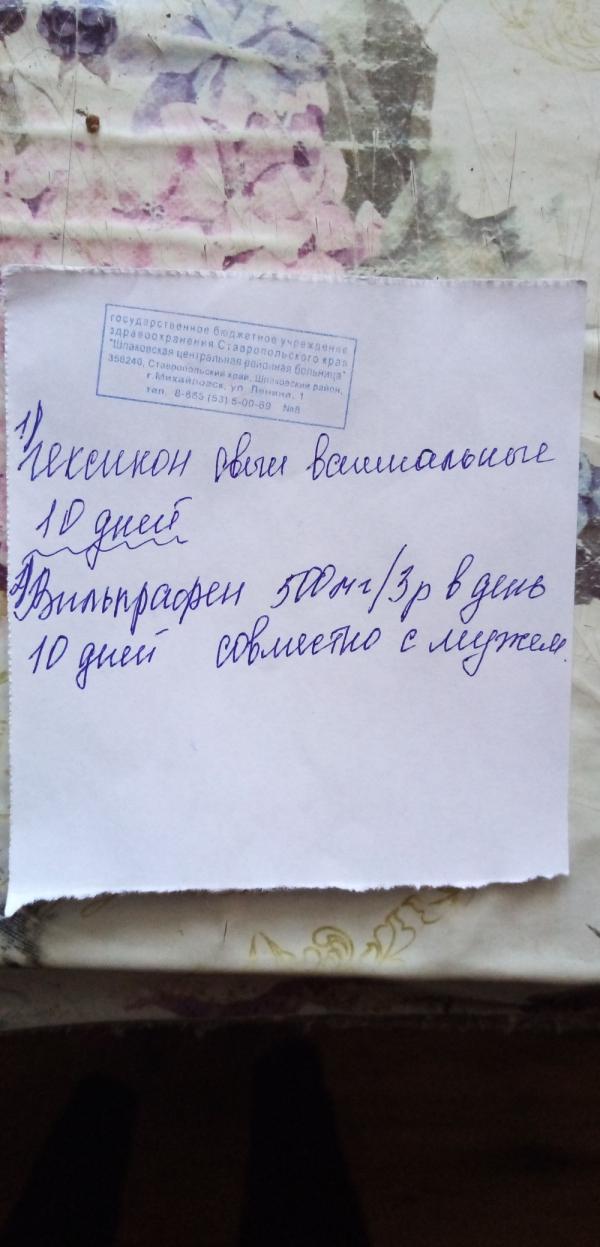 государственное бюджетное учреждение
здравоохранения Ставропольского края
"Шпаковская центральная районная больница"
356240, Ставропольский край, Шпаковский район,
г.Михайловск, ул. Ленина, 1
тел. 8-865 (53) 5-00-69 №8
1) Гексикон овули вагинальные
10 дней
2) Вильпрафен 500мг/3р в день
10 дней совместно с мужем.